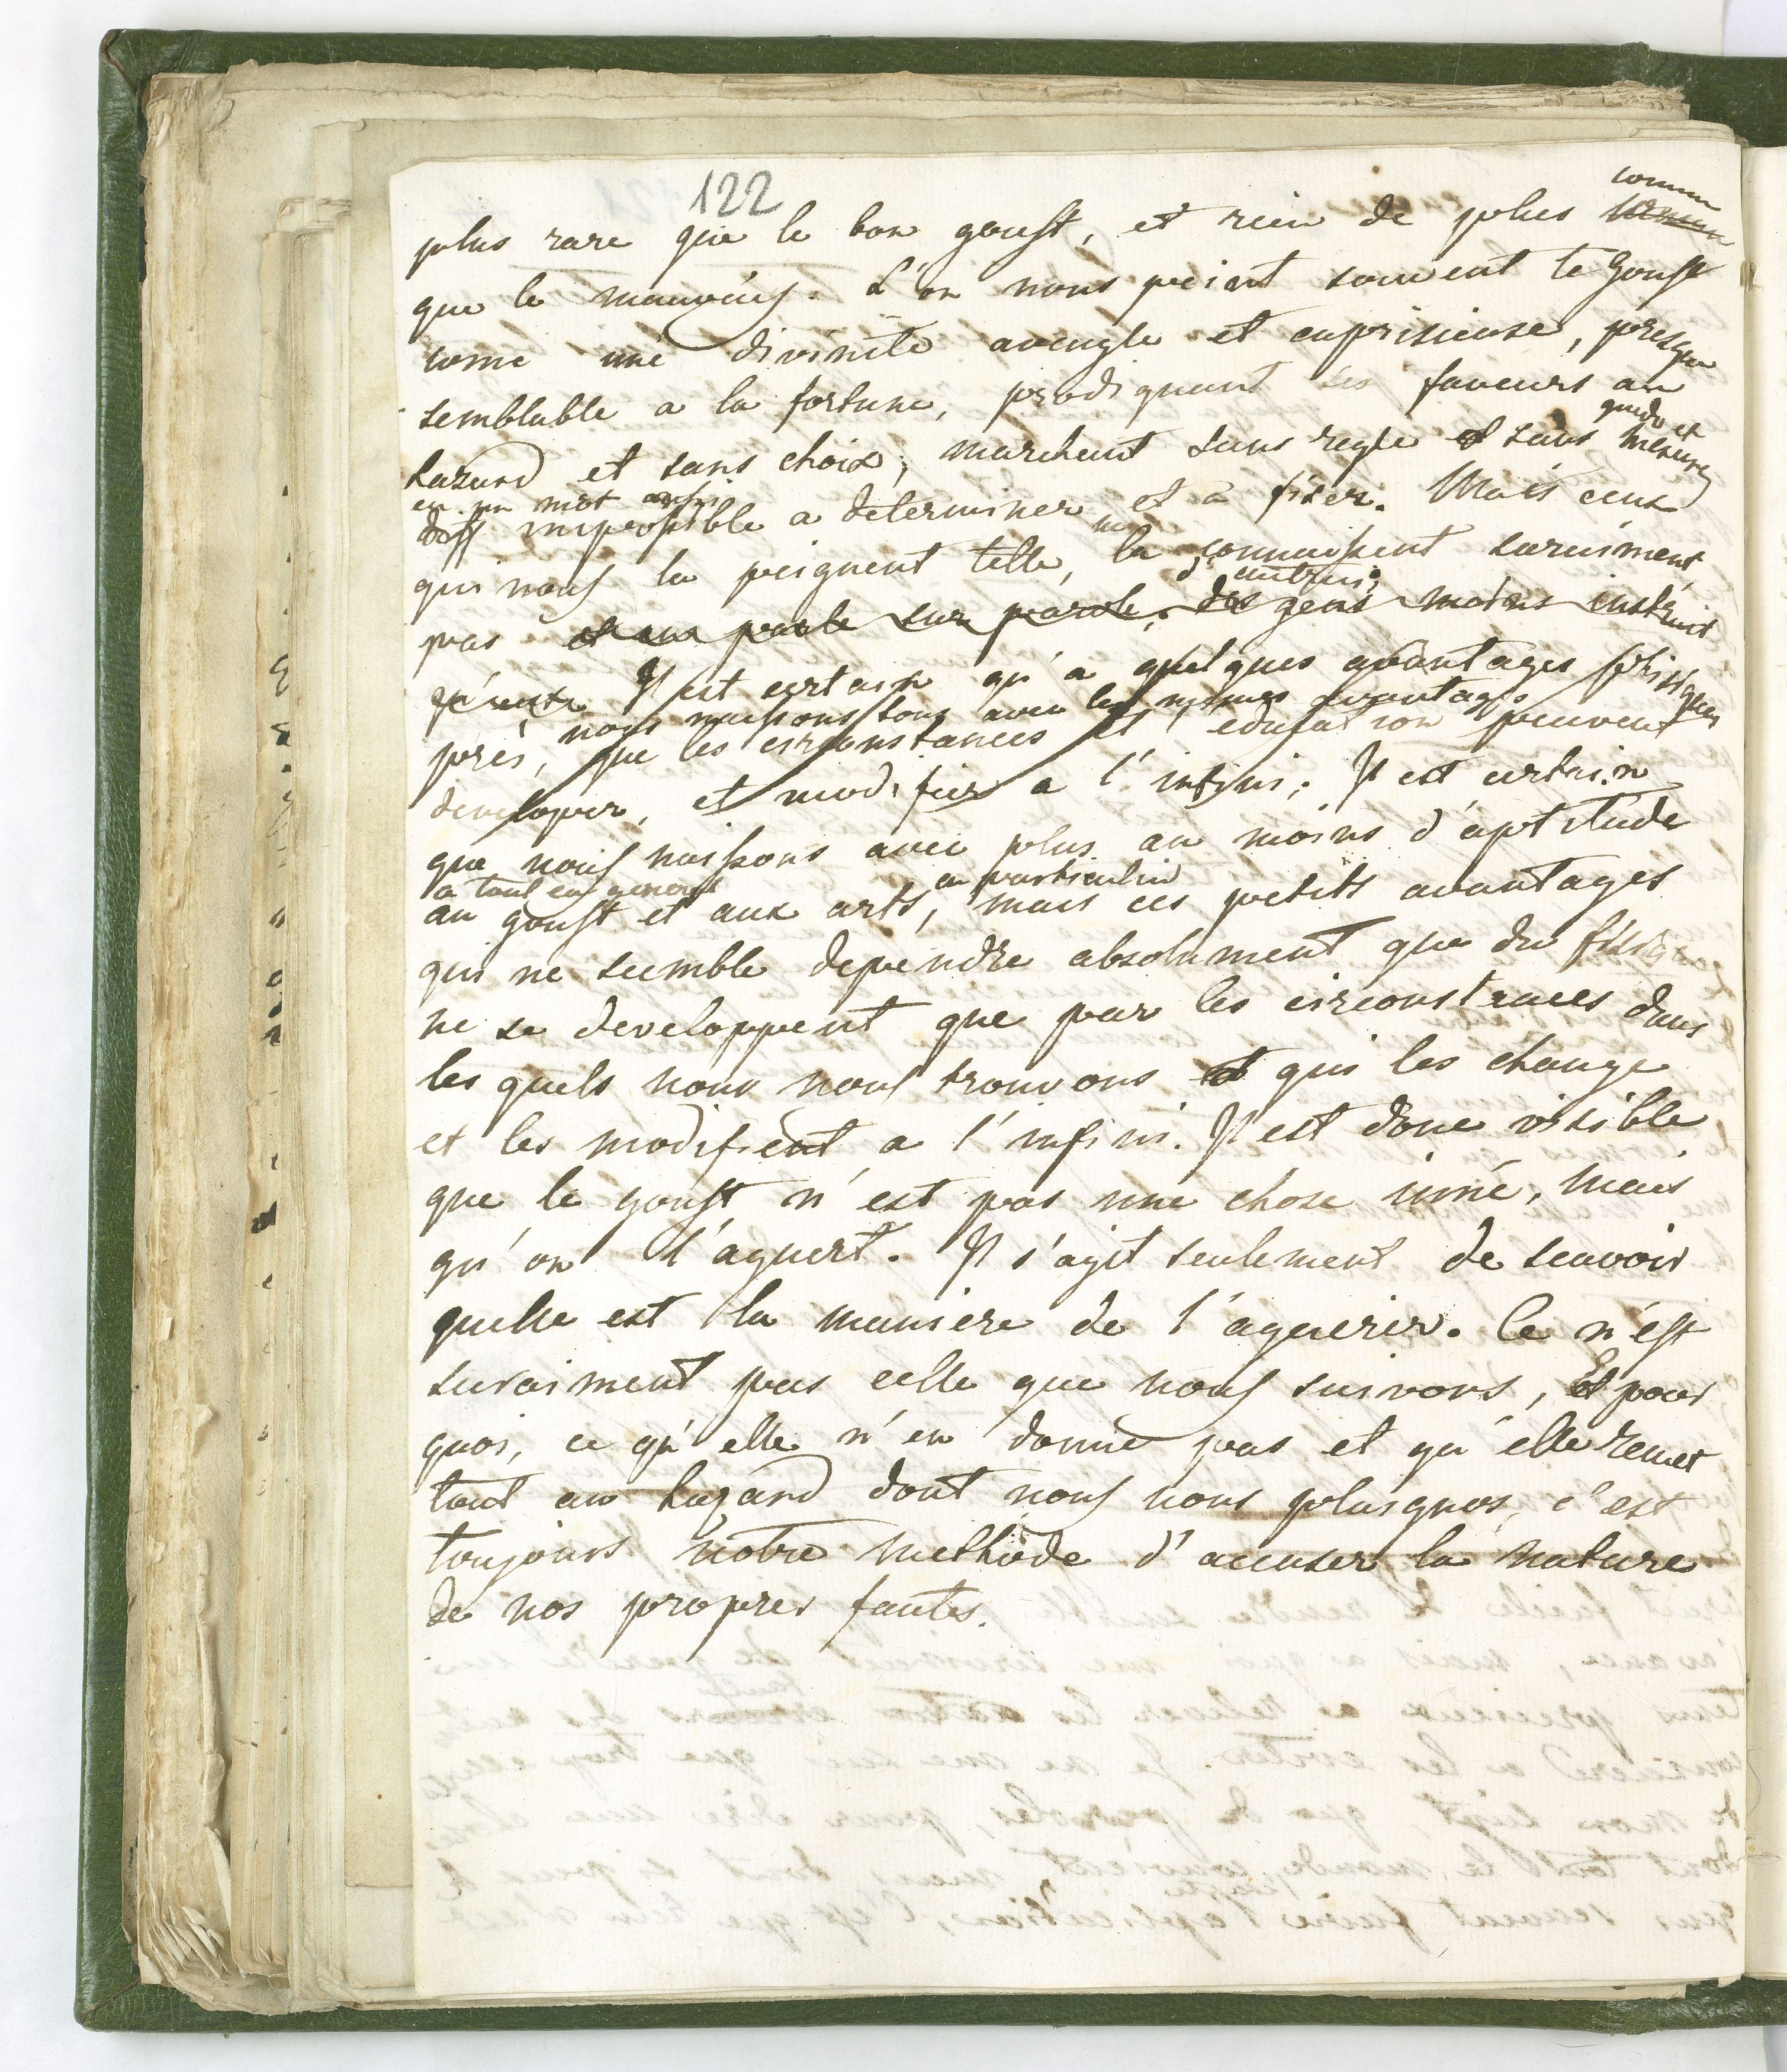 122
comun
plus rare que le bon goust, et rien de plus
que le mauvais. L'on nous peint souvent le Goust
come une divinité aveugle et caprisieuse, presque
semblable a la fortune, prodiguant ses faveurs au
guide et
hazard et sans choix, marchant sans regle et sans mesure
en un mot aussi
impossible a determiner et a fixer. Mais ceux
qui nous la peignent telle, la connaissent suraiment
pas et en parle sur parole, des gens moins instruit
qu'eux Il est certain qu'a quelques avantages phisiques
nous naissons tous avec les mêmes avantages
près, que les circonstances et l'education peuvent
developer, et modifier a l'infini; Il est certain
que nous naissons avec plus au moins d'aptitude
a tout en general en particulier
au goust et aux arts, mais ces petits avantages
qui ne semble dependre absolument que du
ne se developpent que par les circonstances dans
les quels nous nous trouvons et qui les change
et les modifient a l'infini. Il est donc visible
que le goust n'est pas une chose inné, mais
qu'on l'aquert. Il s'agit seulement de scavoir
quelle est la maniere de l'aquerir. Ce n'est
suraiment pas celle que nous suivons, Et pour
quoi, ce qu'elle n'en donne pas et qu'elle remet
tout au hazard dont nous nous plaignos, c'est
toujours notre methode d'accuser la nature
de nos propres fautes.